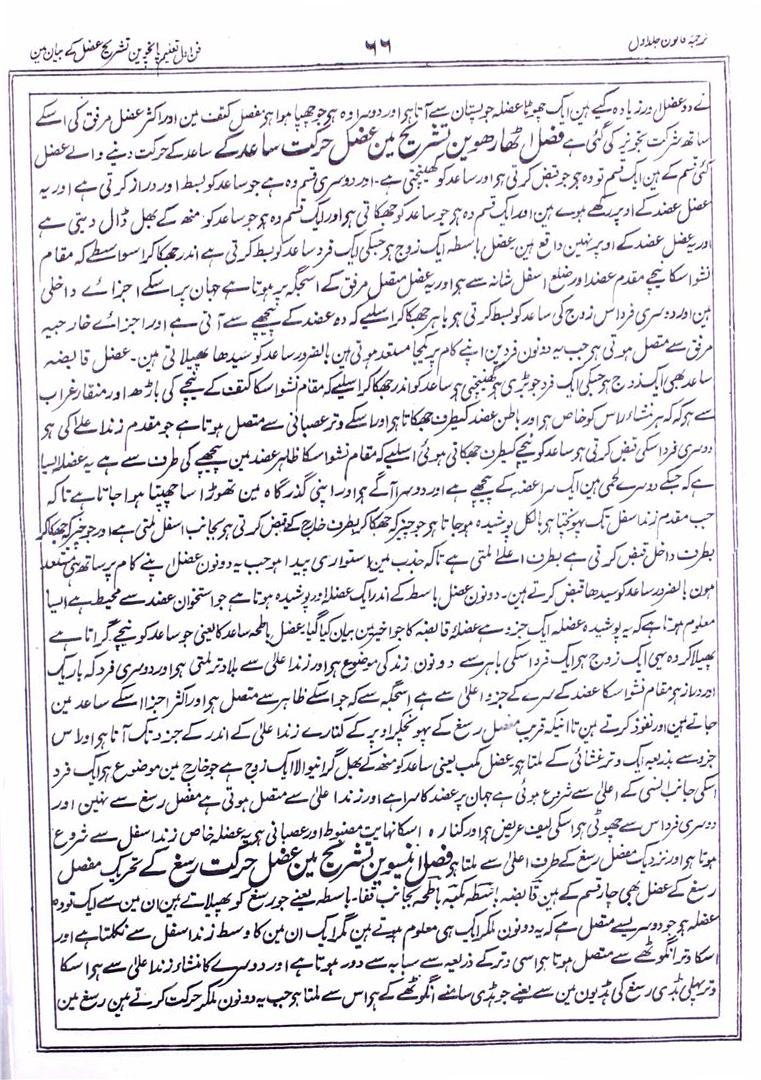 ترجمۂ قانون جلد اول ٦٦ فن اول تعلیم پانچوین تشریح عضل کے بیان مین
نے دو عضل اور زیادہ کیے ہین ایک چھوٹا عضلہ جو پستان سے آتا ہی اور دوسرا وہ ہی جو چھپا ہوا ہی مفصل کتف مین اور اکثر عضل مرفق کی اسکے
ساتھ شرکت تجویز کی گئی ہے فصل اٹھارھوین تشریح مین عضل حرکت ساعد کے ساعد کے حرکت دینے والے عضل
کئی قسم کے ہین ایک قسم تو وہ ہی جو قبض کرتی ہی اور ساعد کو کھینچتی ہے۔ اور دوسری قسم وہ ہے جو ساعد کو بسط اور دراز کرتی ہے اور یہ
عضل عضد کے اوپر رکھے ہوے ہین اور ایک قسم وہ ہی جو ساعد کو جھکاتی ہی اور ایک قسم وہ ہی جو ساعد کو منھ کے بھل ڈال دیتی ہے
اور یہ عضل عضد کے اوپر نہین واقع ہین عضل باسطہ ایک زوج ہی جسکی ایک فرد ساعد کو بسط کرتی ہے اندر جھکا کر اسواسطے کہ مقام
نشو اسکا نیچے مقدم عضد اور ضلع اسفل شانہ سے ہی اور یہ عضل مفصل مرفق کے اسجگہ پر ہوتا ہے جہان پر اسکے اجزاے داخلی
ہین اور دوسری فرد اس زوج کی ساعد کو بسط کرتی ہی باہر جھکا کر اسلیے کہ وہ عضد کے پیچھے سے آتی ہے اور اجزاے خارجیہ
مرفق سے متصل ہوتی ہی جب یہ دونون فردین اپنے کام پر یکجا مستعد ہوتی ہین بالضرور ساعد کو سیدھا پھیلاتی ہین۔ عضل قابضہ
ساعد بھی ایک زوج ہی جسکی ایک فرد جو بڑی ہی کھینچتی ہی ساعد کو اندر جھکا کر اسلیے کہ مقام نشو اسکا کتف کے نیچے کی باڑھ اور منقار غراب
سے ہی کہ ہر منشا راس کو خاص ہی اور باطن عضد کیطرف جھکاتا ہی اور اسکے وتر عصبانی سے متصل ہوتا ہے جو مقدم زند اعلاے کی ہی
دوسری فرد اسکی قبض کرتی ہی ساعد کو نیچے کیطرف جھکاتی ہوئی اسلیے کہ مقام نشو اسکا ظاہر عضد مین پیچھے کی طرف سے ہے یہ عضلہ ایسا
ہے کہ جسکے دو سرے لحمی ہین ایک سرا عضد کے پیچھے ہے اور دوسرا آگے ہی اور اپنی گذرگاہ مین تھوڑا سا چھپتا ہوا جاتا ہے تاکہ
جب مقدم زند اسفل تک پہونچتا ہی بالکل پوشیدہ ہو جاتا ہی جو چیز کہ جھکا کر بطرف خارج کے قبض کرتی ہی بجانب اسفل ملتی ہے اور جو چیز کہ جھکا کر
بطرف داخل قبض کرتی ہے بطرف اعلاے ملتی ہے تاکہ جذب مین استواری پیدا ہو جب یہ دونون عضل اپنے کام پر ساتھ ہی مستعد
ہون بالضرور ساعد کو سیدھا قبض کرتے ہین۔ دونون عضل باسطہ کے اندر ایک عضلہ اور پوشیدہ ہوتا ہے جو استخوان عضد سے محیط ہے ایسا
معلوم ہوتا ہے کہ یہ پوشیدہ عضلہ ایک جزء ہے عضلۂ قابضہ کا جو اخیر مین بیان کیا گیا۔ عضل باطحہ ساعد کا یعنی جو ساعد کو نیچے گراتا ہے
پھیلا کر وہ یہی ایک زوج ہی ایک فرد اسکی باہر سے دونون زند کی موضوع ہی اور زند اعلیٰ سے بلا وتر ملتی ہی اور دوسری فرد کہ باریک
اور دراز ہی مقام نشو اسکا عضد کے سرے کے جزو اعلیٰ سے ہے اسجگہ سے کہ جو اسکے ظاہر سے متصل ہی اور اکثر اجزا اسکے ساعد مین
جاتے ہین اور نفوذ کرتے ہین تا اینکہ قریب مفصل رسغ کے پہونچکر اوپر کے کنارے زند اعلیٰ کے اندر کے جزء تک آتا ہی اور اس
جزو سے بذریعہ ایک وتر غشائی کے ملتا ہی عضل مکب یعنی ساعد کو منھ کے بھل گرانیوالا ایک زوج ہے جو خارج مین موضوع ہی ایک فرد
اسکی جانب انسی کے اعلیٰ سے شروع ہوتی ہے جہان پر عضد کا سرا ہے اور زند اعلیٰ سے متصل ہوتی ہے مفصل رسغ سے نہین اور
دوسری فرد اس سے چھوٹی ہی اسکی لیف عریض ہی اور کنارہ اسکا نہایت مضبوط اور عصبانی ہی یہ عضلہ خاص زند اسفل سے شروع
ہوتا ہی اور نزدیک مفصل رسغ کے طرف اعلیٰ سے ملتا ہی فصل انیسوین تشریح مین عضل حرکت رسغ کے تحریک مفصل
رسغ کے عضل بھی چار قسم کے ہین قابضہ باسطہ مکبہ باطحہ بجانب قفا۔ باسطہ یعنے جو رسغ کو پھیلاتے ہین ان مین سے ایک تو وہ
عضلہ ہی جو دوسرے متصل ہے کہ یہ دونون ملکر ایک ہی معلوم ہوتے ہین مگر ایک ان مین کا وسط زند اسفل سے نکلتا ہے اور
اسکا وتر انگوٹھے سے متصل ہوتا ہی اسی وتر کے ذریعہ سے سبابہ سے دور ہوتا ہے اور دوسرے کا منشاء زند اعلیٰ سے ہی اسکا
وتر پہلی ہڈی رسغ کی ہڈیون مین سے یعنے جو ہڈی سامنے انگوٹھے کے ہی اس سے ملتا ہی جب یہ دونون ملکر حرکت کرتے ہین رسغ مین